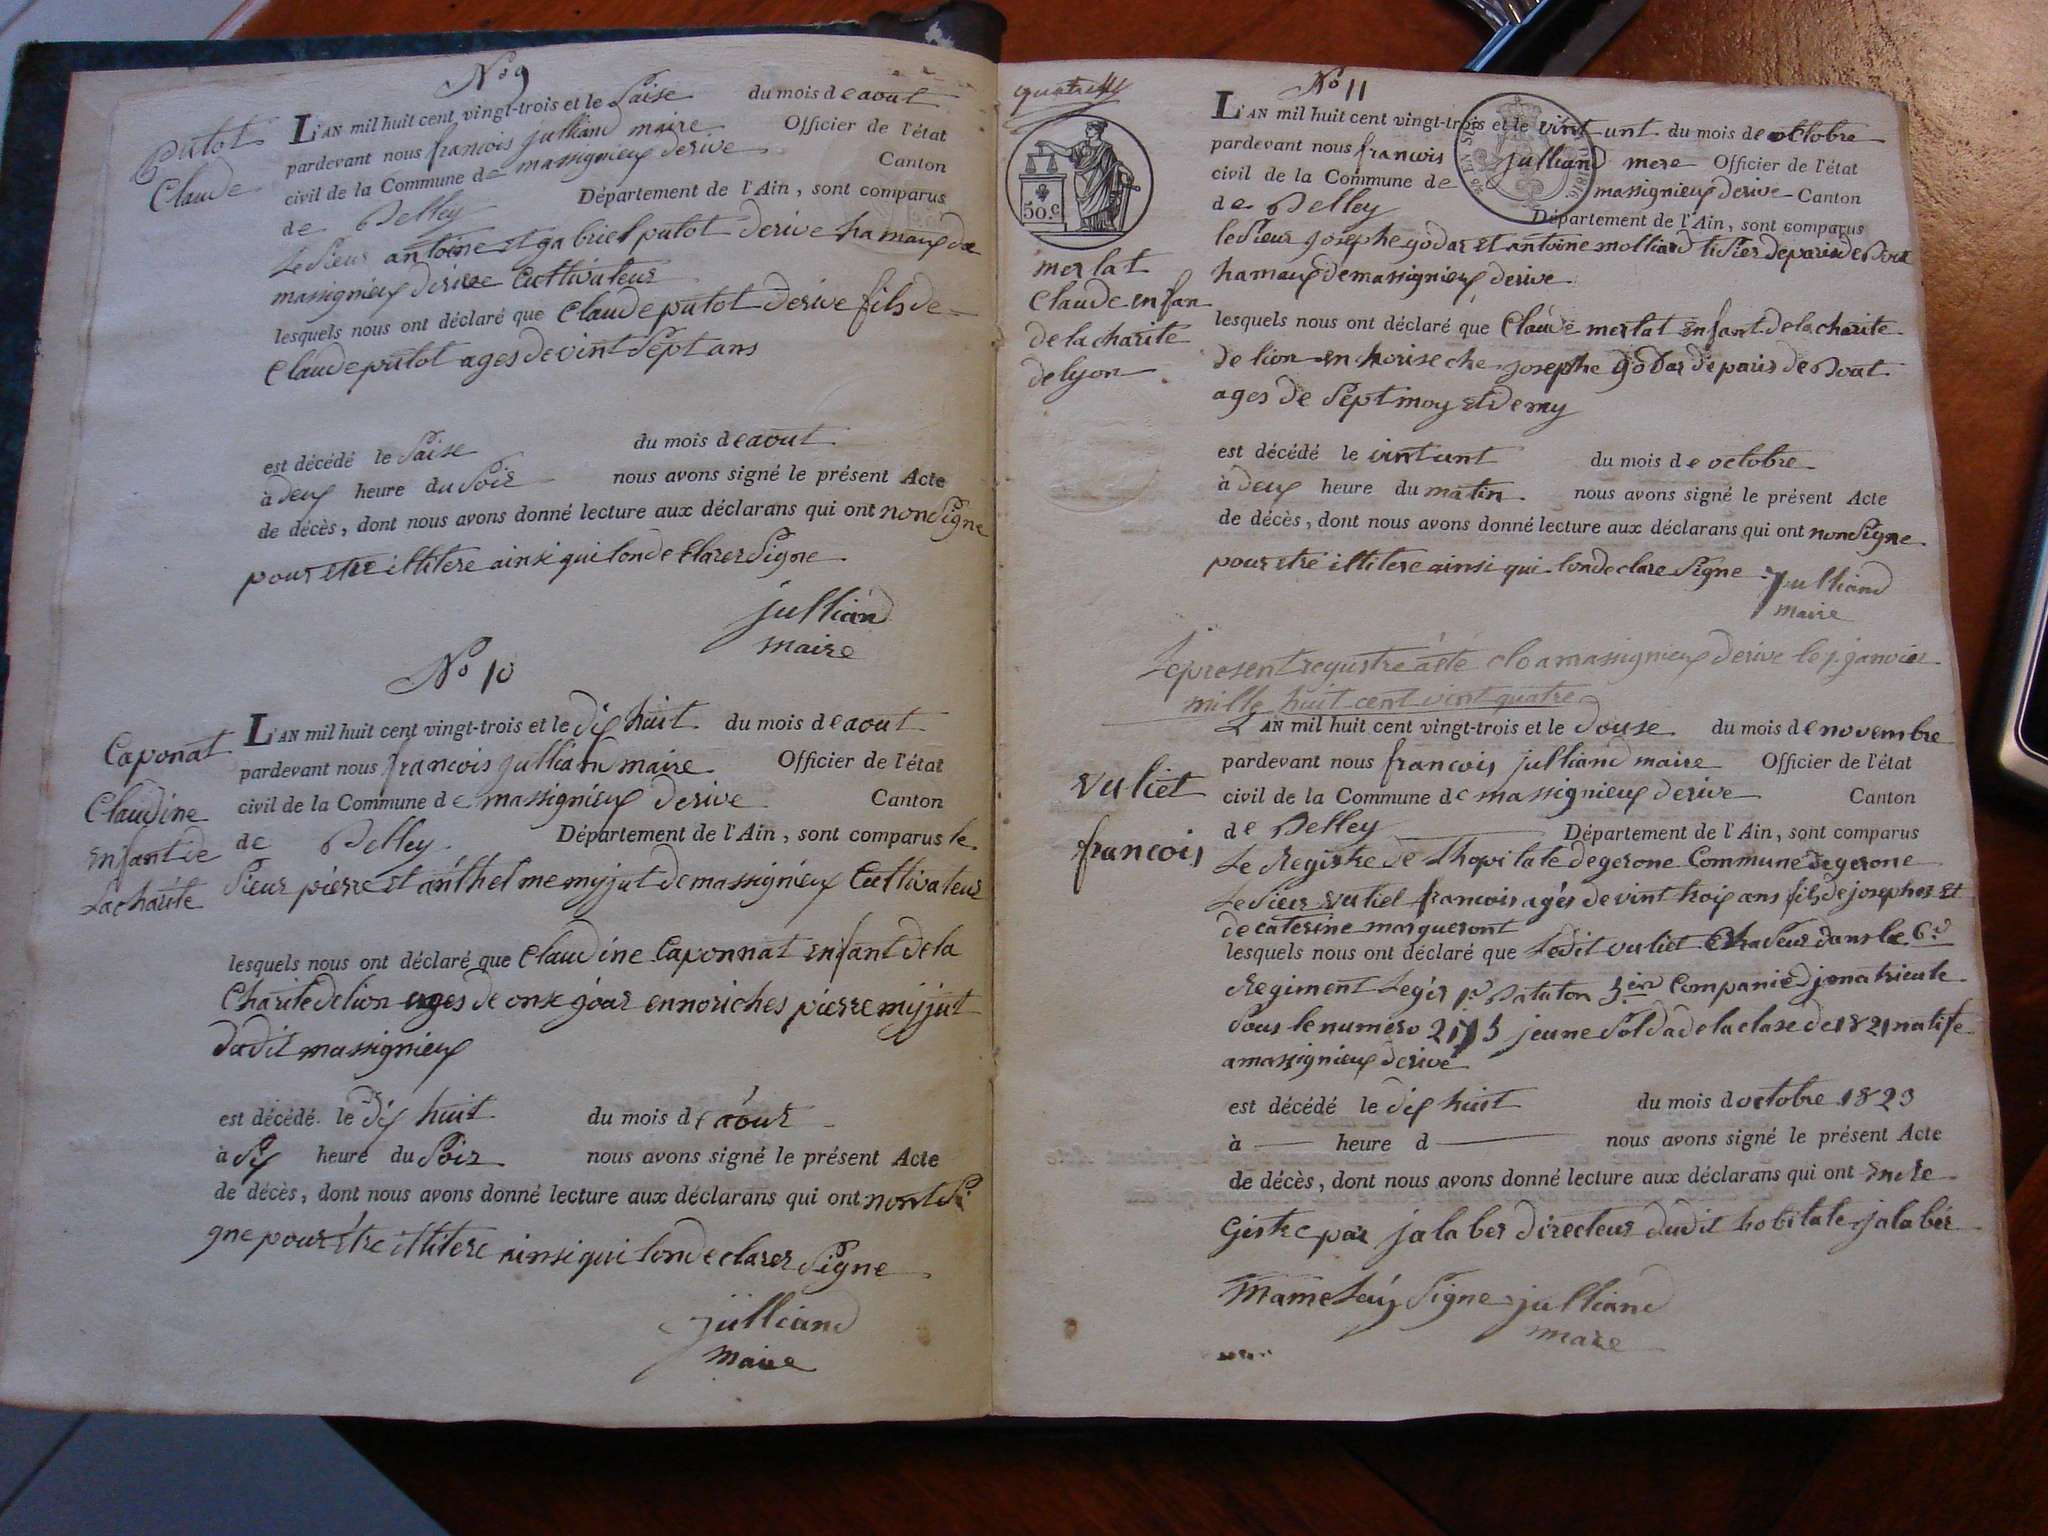 No 9
Putot
Claude
L'AN mil huit cent vingt-trois et le Saise du mois de aout
pardevant nous francois julliand maire Officier de l'état
civil de la Commune de massignieux derive Canton
de Belley Département de l'Ain, sont comparus
Le Sieur antoine et gabriel putot derive hamaux de
massignieux derive Cultivateur
lesquels nous ont déclaré que Claude putot derive fils de
Claude putot ages de vint Sept ans
est décédé le Saise du mois de aout
à deux heure du Soir nous avons signé le présent Acte
de décès, dont nous avons donné lecture aux déclarans qui ont non Signe
pour etre illitere ainsi qui londe Clarer Signe
julliand
maire
No 10
Caponat
Claudine
enfant de
La charite
L'AN mil huit cent vingt-trois et le dix huit du mois de aout
pardevant nous francois julliand maire Officier de l'état
civil de la Commune de massignieux derive Canton
de Belley Département de l'Ain, sont comparus le
Sieur pierre et anthelme myjut de massignieux Cultivateur
lesquels nous ont déclaré que Claudine Caponnat enfant de la
Charite de lion ages de onse jour ennoriches pierre myjut
dudit massignieux
est décédé le dix huit du mois de aout
à Six heure du Soir nous avons signé le présent Acte
de décès, dont nous avons donné lecture aux déclarans qui ont nont Si
gne pour être illitere ainsi qui londe clarer Signe
julliand
maire
quatre
50.c
1816
No 11
merlat
Claude enfan
de la charite
de lyon
L'AN mil huit cent vingt-trois et le vint unt du mois de octobre
pardevant nous francois julliand mere Officier de l'état
civil de la Commune de massignieux derive Canton
de Belley Département de l'Ain, sont comparus
le Sieur josephe godar et antoine molliard tisier de paris de Bout
hamaux de massignieux derive
lesquels nous ont déclaré que Claude merlat enfant de la charite
de lion en norise che josephe godar de paris de Bout
ages de Sept moy et demy
est décédé le vint unt du mois de octobre
à deux heure du matin nous avons signé le présent Acte
de décès, dont nous avons donné lecture aux déclarans qui ont non Signe
pour etre illitere ainsi qui londe clare Signe julliand
maire
Le present regustre a ete clo a massignieux derive le 1 janvier
mille huit cent vint quatre
vuliet
francois
L'AN mil huit cent vingt-trois et le douse du mois de novembre
pardevant nous francois julliand maire Officier de l'état
civil de la Commune de massignieux derive Canton
de Belley Département de l'Ain, sont comparus
Le Registre de Lhopitale de gerone Commune de gerone
Le Sieur vuliet francois ages de vint trois ans fils de josephes et
de caterine margueront
lesquels nous ont déclaré que Ledit vuliet Chaseur dans le 6e
Regiment Leger 1er Bataton 3em Companie jmatricule
Sous le numero jeune Soldade la clase de 1821 natife
a massignieux derive
est décédé le dix huit du mois d octobre 1823
à heure d nous avons signé le présent Acte
de décès, dont nous avons donné lecture aux déclarans qui ont enre
gistre par jalaber directeur dudit hobitale jalaber
Signe julliand
mare